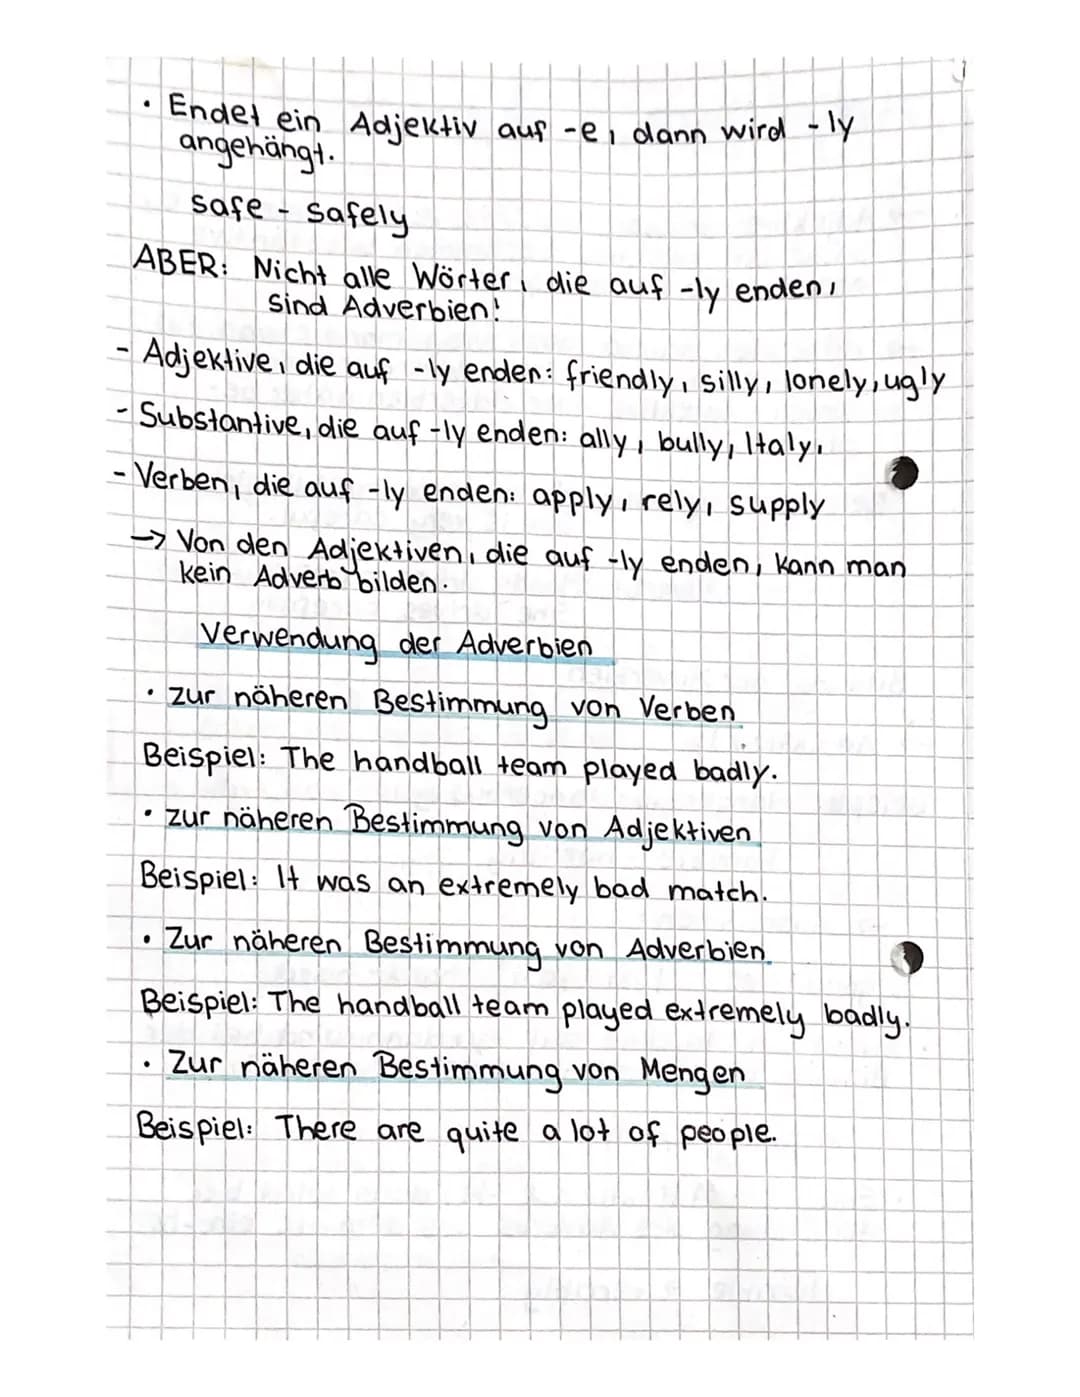 • Endet ein Adjektiv auf -e, dann wird -ly
angehängt.
safe - safely
ABER: Nicht alle Wörter, die auf -ly enden,
sind Adverbien!
- Adjektive, die auf -ly enden: friendly, silly, lonely, ugly
- Substantive, die auf -ly enden: ally, bully, Italy,
- Verben, die auf -ly enden: apply, rely, supply
→ Von den Adjektiven, die auf -ly enden, kann man
kein Adverb bilden.
Verwendung der Adverbien
• zur näheren Bestimmung von Verben
Beispiel: The handball team played badly.
• zur näheren Bestimmung von Adjektiven
Beispiel: It was an extremely bad match.
• Zur näheren Bestimmung von Adverbien
Beispiel: The handball team played extremely badly.
• Zur näheren Bestimmung von Mengen
Beispiel: There are quite a lot of people.